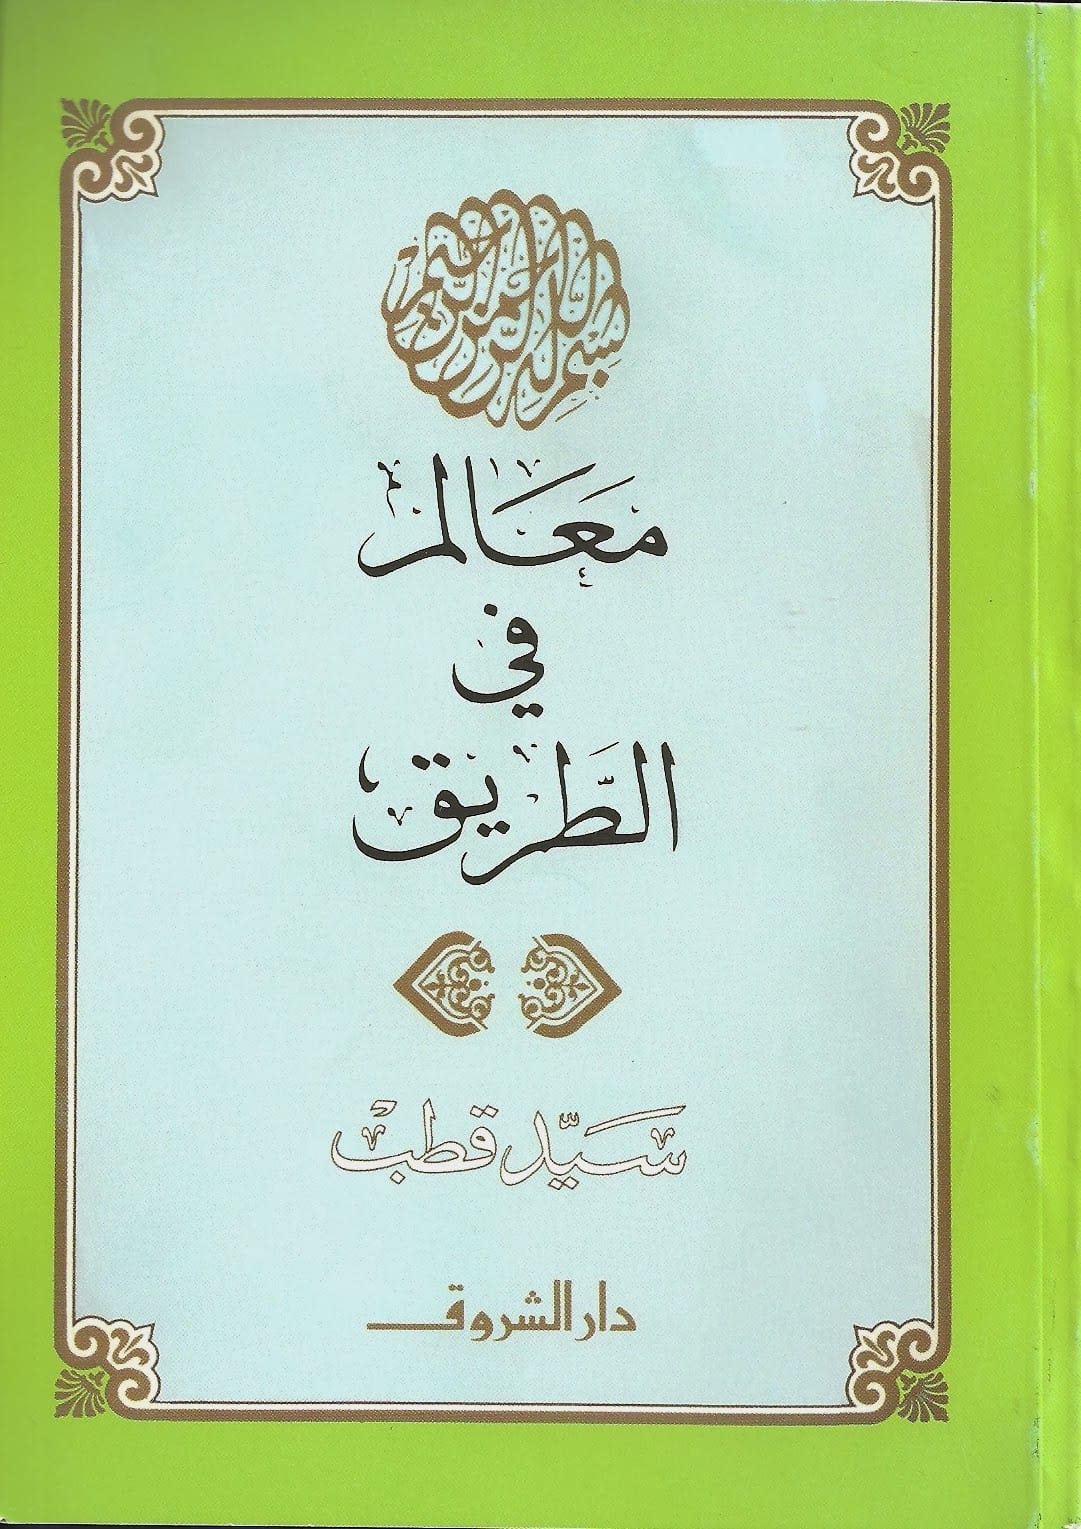 بِسْمِ اللَّهِ الرَّحْمَنِ الرَّحِيمِ
مَعَالم
في
الطَّريق
سَيِّد قطب
دار الشروق